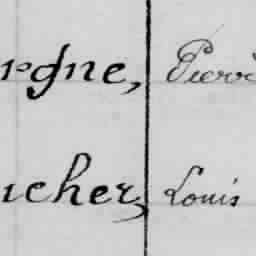 epgne, Pierre
ucher, Louis